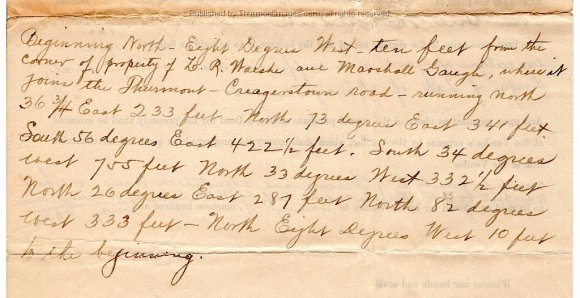 Published by ThurmontImages.com, all rights reserved
Beginning North - Eight Degree West - ten feet from the
corner of property of L. R. Waeshe and Marshall Gaugh, where it
joins the Thurmont - Creagerstown road - running North
36 3/4 East 233 feet North 73 degrees East 341 feet
South 56 degrees East 422 1/2 feet. South 34 degrees
west 755 feet North 33 degrees West 332 1/2 feet
North 26 degrees East 287 feet North 82 degrees
west 333 feet - North Eight Degrees West 10 feet
to the beginning.